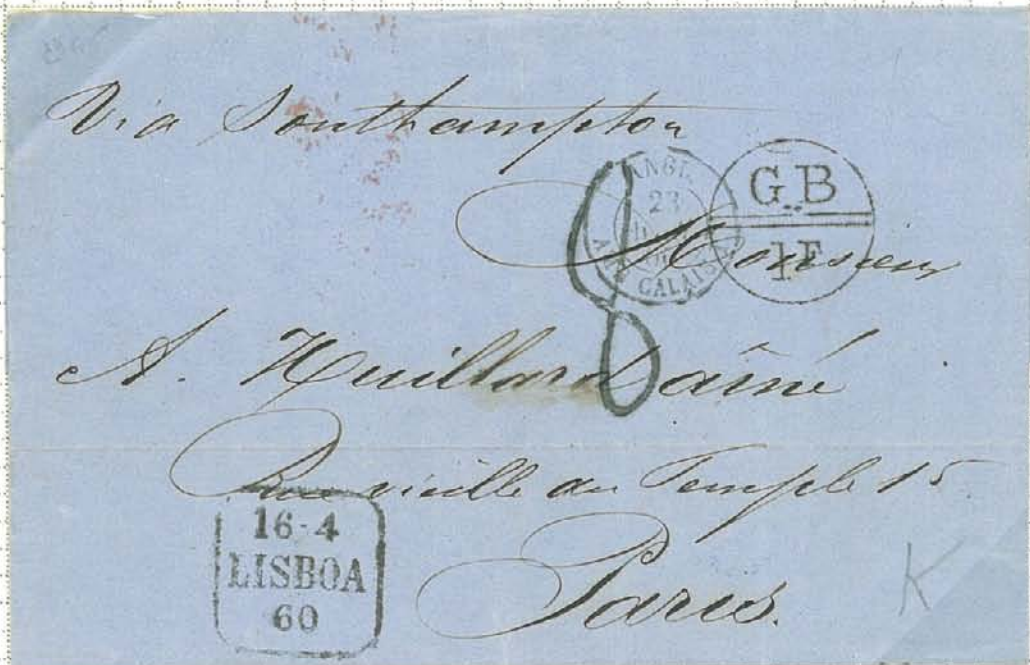 Via Southampton
ANGL.
23
AMB. CALAIS
G.B
1F
8
Monsieur
A. Huillard aîné
Rue vieille du Temple 15
Paris.
16-4
LISBOA
60
K